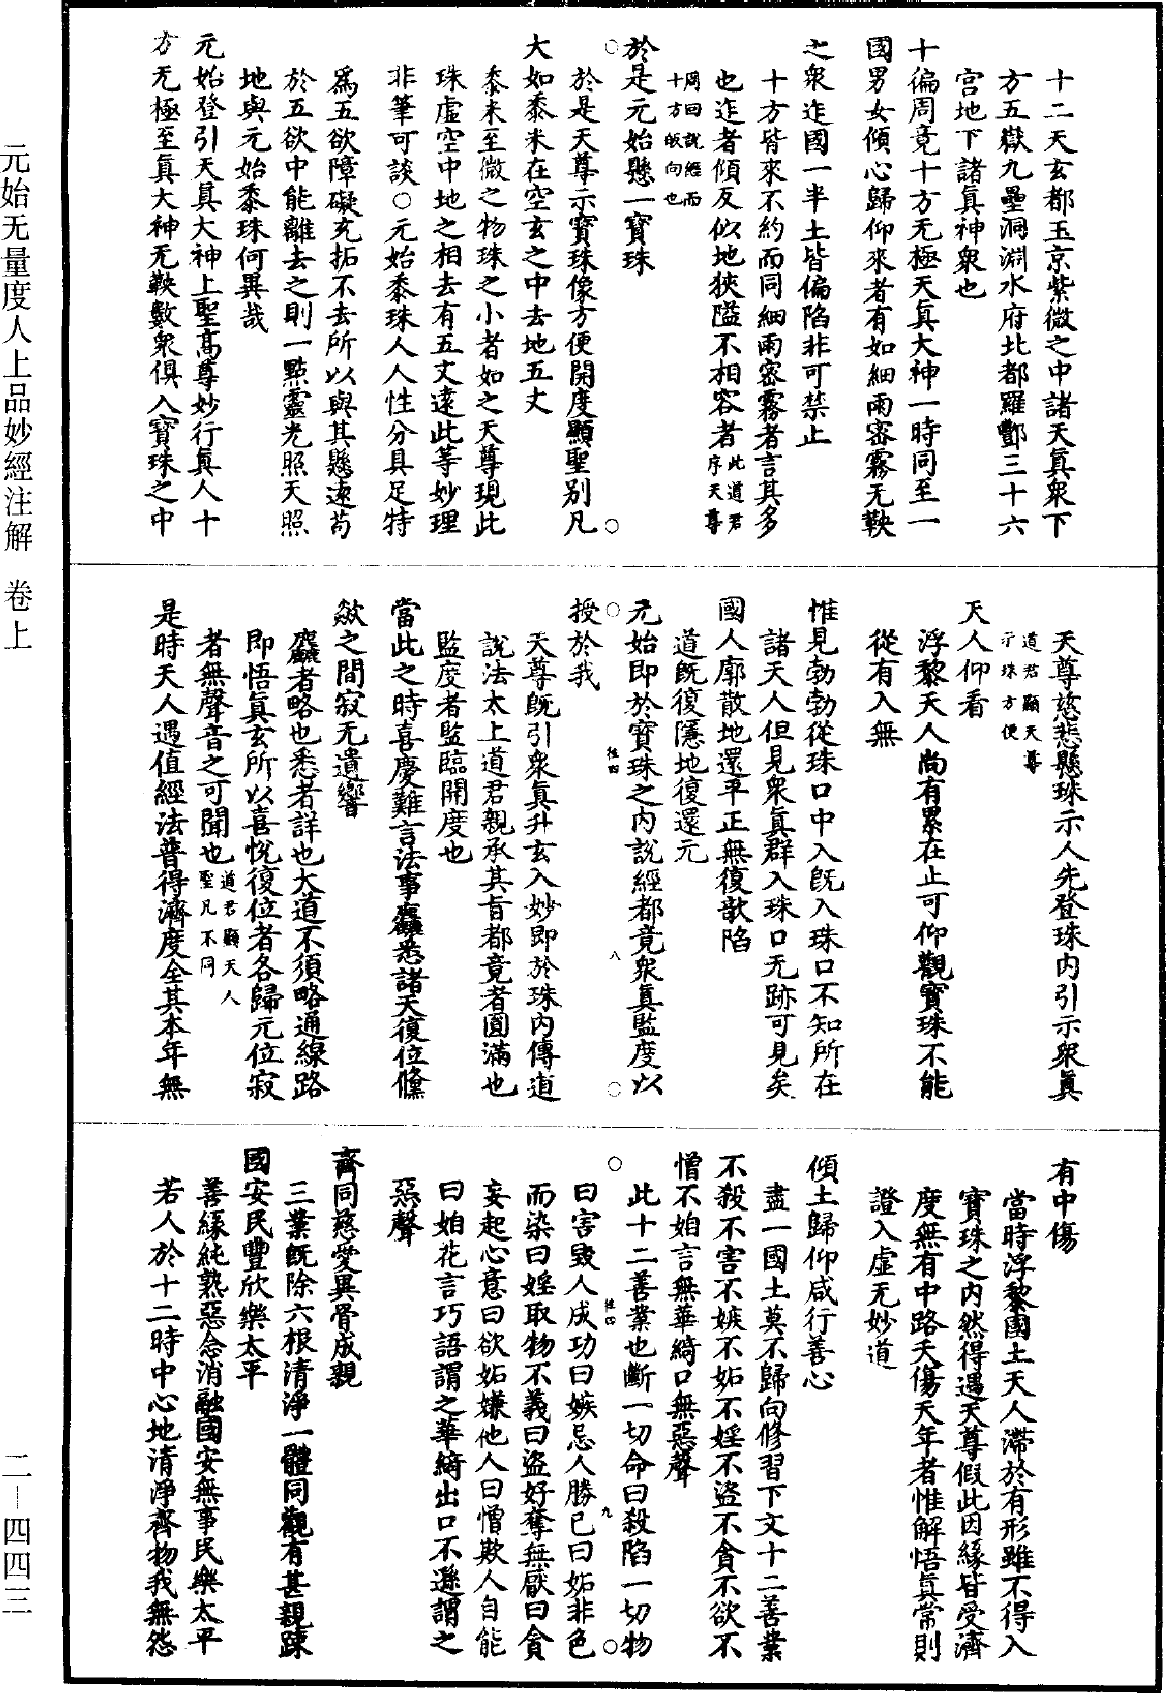 十二天玄都玉京紫微之中諸天眞衆下
方五嶽九壘洞淵水府北都羅酆三十六
宮地下諸眞神衆也
十徧周竟十方无極天眞大神一時同至一
國男女傾心歸仰來者有如細雨密霧无鞅
之衆迮國一半土皆偏陷非可禁止
十方皆來不約而同細雨密霧者言其多
也迮者傾反似地狹隘不相容者此道君
序天尊
周回說經而
十方皈向也
於是元始懸一寶珠
於是天尊示寶珠像方便開度顯聖別凡
大如黍米在空玄之中去地五丈
黍米至微之物珠之小者如之天尊現此
珠虛空中地之相去有五丈遠此等妙理
非筆可談○元始黍珠人人性分具足特
爲五欲障礙充拓不去所以與其懸遠苟
於五欲中能離去之則一點靈光照天照
地與元始黍珠何異哉
元始登引天眞大神上聖高尊妙行眞人十
方无極至眞大神无鞅數衆俱入寶珠之中
天尊慈悲懸珠示人先登珠內引示衆眞
道君顯天尊
示珠方便
天人仰看
浮黎天人尚有累在止可仰觀寶珠不能
從有入無
惟見勃勃從珠口中入旣入珠口不知所在
諸天人但見衆眞群入珠口无跡可見矣
國人廓散地還平正無復欹陷
道旣復隱地復還元
元始即於寶珠之內說經都竟衆眞監度以
授於我
天尊旣引衆眞升玄入妙即於珠內傳道
說法太上道君親承其旨都竟者圓滿也
監度者監臨開度也
當此之時喜慶難言法事麤悉諸天復位儵
歘之間寂无遺響
麤者略也悉者詳也大道不須略通線路
即悟眞玄所以喜悅復位者各歸元位寂
者無聲音之可聞也道君顯天人
聖凡不同
是時天人遇值經法普得濟度全其本年無
有中傷
當時浮黎國土天人滯於有形雖不得入
寶珠之內然得遇天尊假此因緣皆受濟
度無有中路夭傷天年者惟解悟眞常則
證入虛无妙道
傾土歸仰咸行善心
盡一國土莫不歸向修習下文十二善業
不殺不害不嫉不妬不婬不盜不貪不欲不
憎不㛂言無華綺口無惡聲
此十二善業也斷一切命曰殺陷一切物
曰害毀人成功曰嫉忌人勝己曰妬非色
而染曰婬取物不義曰盜好奪無厭曰貪
妄起心意曰欲妬嫌他人曰憎欺人自能
曰㛂花言巧語謂之華綺出口不遜謂之
惡聲
齊同慈愛異骨成親
三業旣除六根清淨一體同觀有甚親踈
國安民豐欣樂太平
善緣純熟惡念消融國安無事民樂太平
若人於十二時中心地清淨齊物我無怨
元始无量度人上品妙經注解 卷上
二—四四三